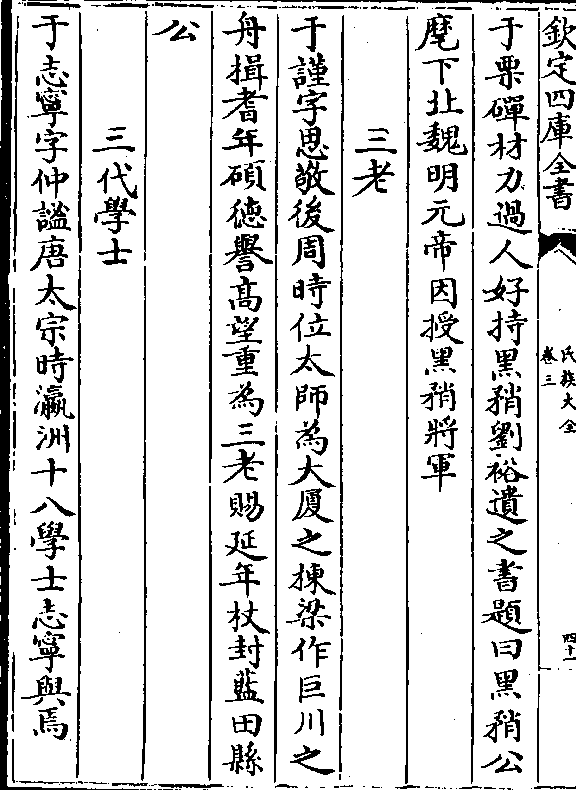 欽定四庫全書
氏族大全
卷三
四十一
于栗磾材力過人好持黑矟劉裕遺之書題曰黑矟公
麾下北魏明元帝因授黑矟將軍
三老
于謹字思敬後周時位太師為大厦之棟梁作巨川之
舟揖耆年碩德譽髙望重為三老賜延年杖封藍田縣
公
三代學士
于志寧字仲謐唐太宗時瀛洲十八學士志寧與焉